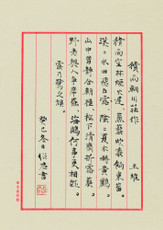 積雨輞川莊作 王維
積雨空林煙火遲蒸藜炊黍餉東菑
漠〻水田飛白鷺陰〻夏木囀黃鸝
山中習靜觀朝槿松下清齋折露葵
野老與人爭席罷海鷗何事更相疑
癸巳冬月